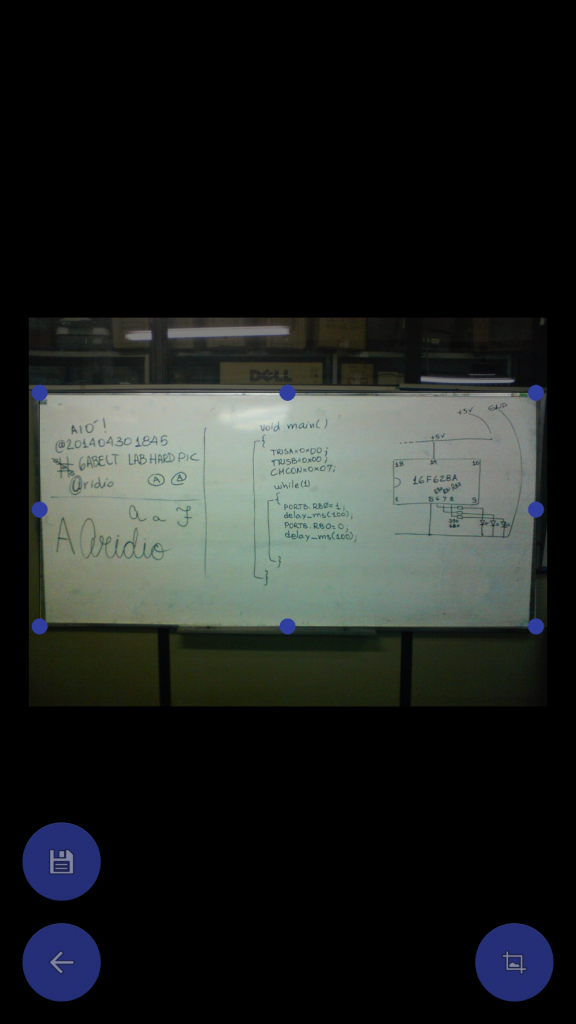 DELL
A10!
@201404301845
GABELT LAB HARD PIC
@ridio
A A
a a F
A @ridio
void main()
{
TRISA=0x00;
TRISB=0x00;
CMCON=0x07;
while(1)
{
PORTB.RB0=1;
delay_ms(100);
PORTB.RB0=0;
delay_ms(100);
}
}
+5V GND
+5V
18 14 10
16F628A
1 5 6 7 8 9